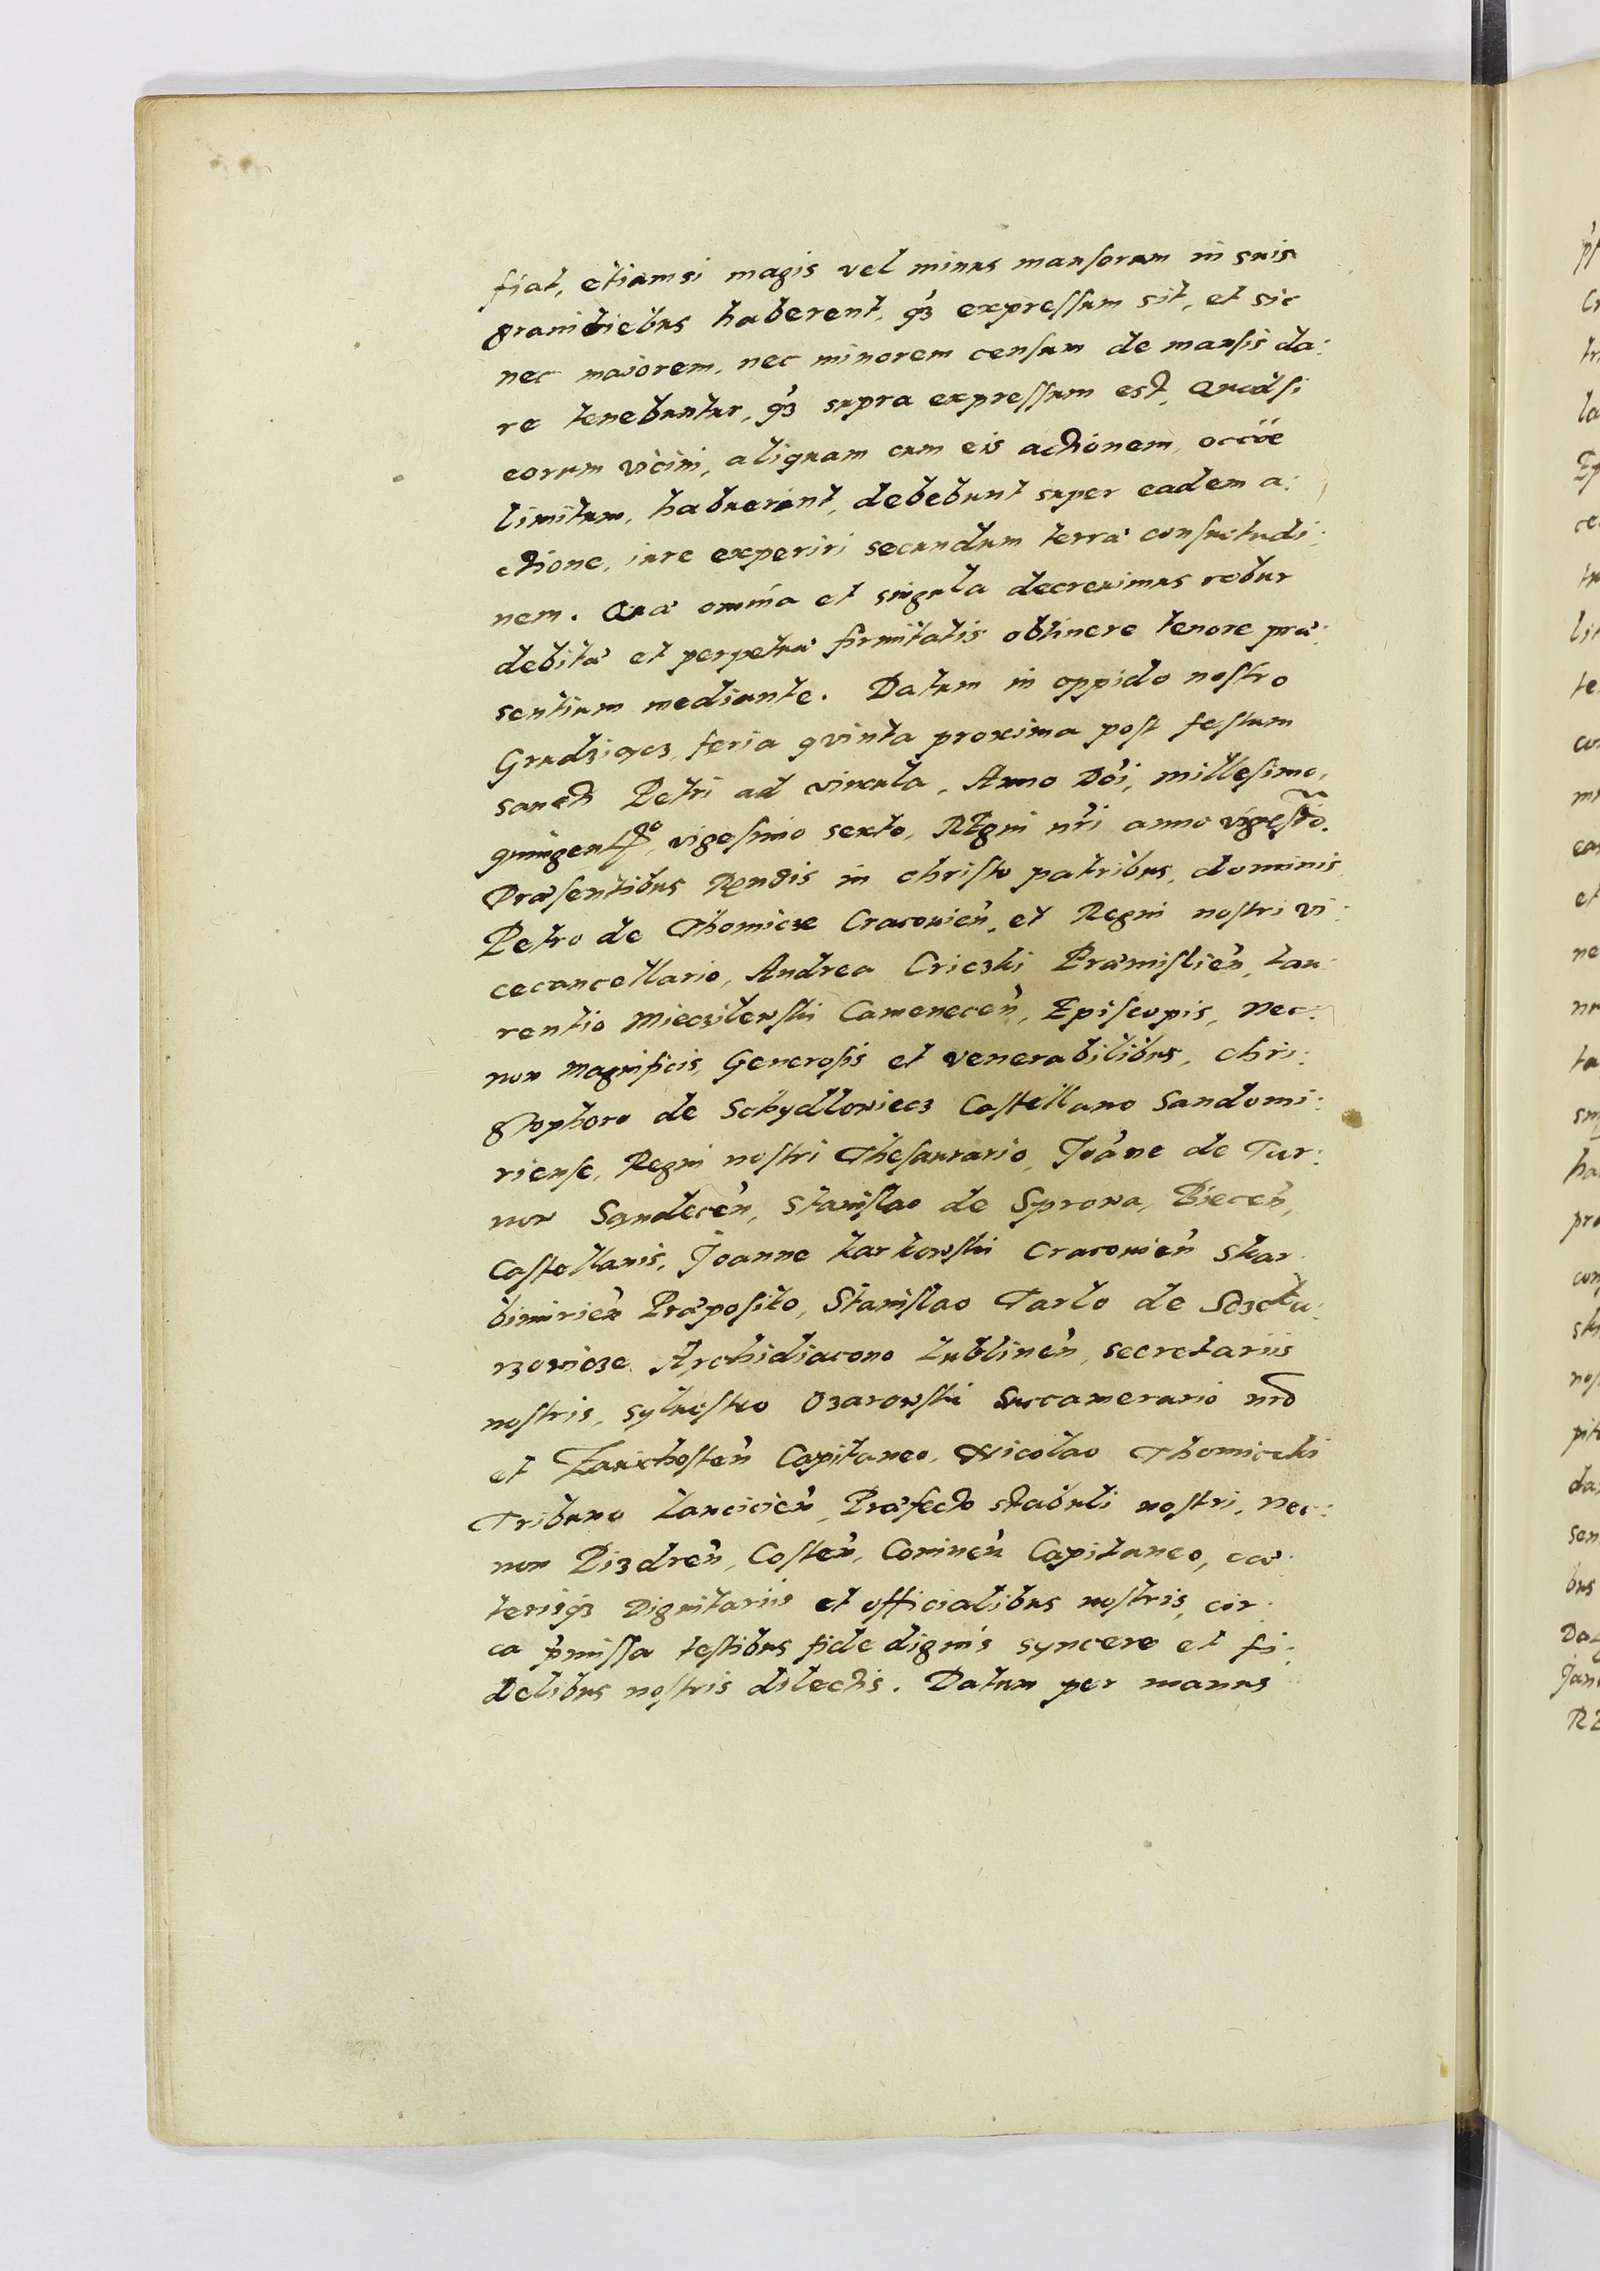 fiat, etiamsi magis vel minus mansorum in suis
granitiebus haberent, qз expressum sit, et sic
nec maiorem, nec minorem censum de mansis da:
re tenebuntur, qз supra expressum est, Quodsi
eorum vicini, aliquam cum eis actionem, occõe
limitum, habuerint, debebunt super eadem a:
ctione, iure experiri secundum terræ consuetudi:
nem. Quæ omnia et singula decreuimus robur
debitæ et perpetuæ firmitatis obtinere tenore præ:
sentium mediante. Datum in oppido nostro
Grudziącz, feria qvinta proxima post festum
sancti Petri ad vincula, Anno Dñi, millesimo,
quingentᵒ, vigesimo sexto, REgni nr̃i anno vigesĩo.
Præsentibus Rendis in christo patribus, dominis
Petro de Thomicze Cracouień, et Regni nostri vi:
cecancellario, Andrea Criczki Præmislień, Lau:
rentio Mieczilewski Cameneceń, Episcopis, Nec:
non Magnificis, Generosis et venerabilibus, chri:
stophoro de Schydlowiecz Castellano Sandomi:
riense, Regni nostri Thesaurario, Joãne de Tar:
now Sandeceń, Stanislao de Sprowa, Bieceń,
Castellanis, Joanne Karkowski Cracouień Skar:
bimirień Præposito, Stanislao Tarlo de Sczeka:
rzowicze Archidiacono Lublineń, secretariis
nostris, syluestro Ozarowski Succamerario nrõ
et Zauichosteń Capitaneo, Nicolao Thomiczki
Tribuno Lancicień, Præfecto stabuli nostri, Nec:
non Pizdreń, Costeń, Conineń Capitaneo, cæ:
terisqз Dignitariis et officialibus nostris, cir:
ca p̃missa testibus fide dignis syncere et fi:
delibus nostris dilectis. Datum per manus